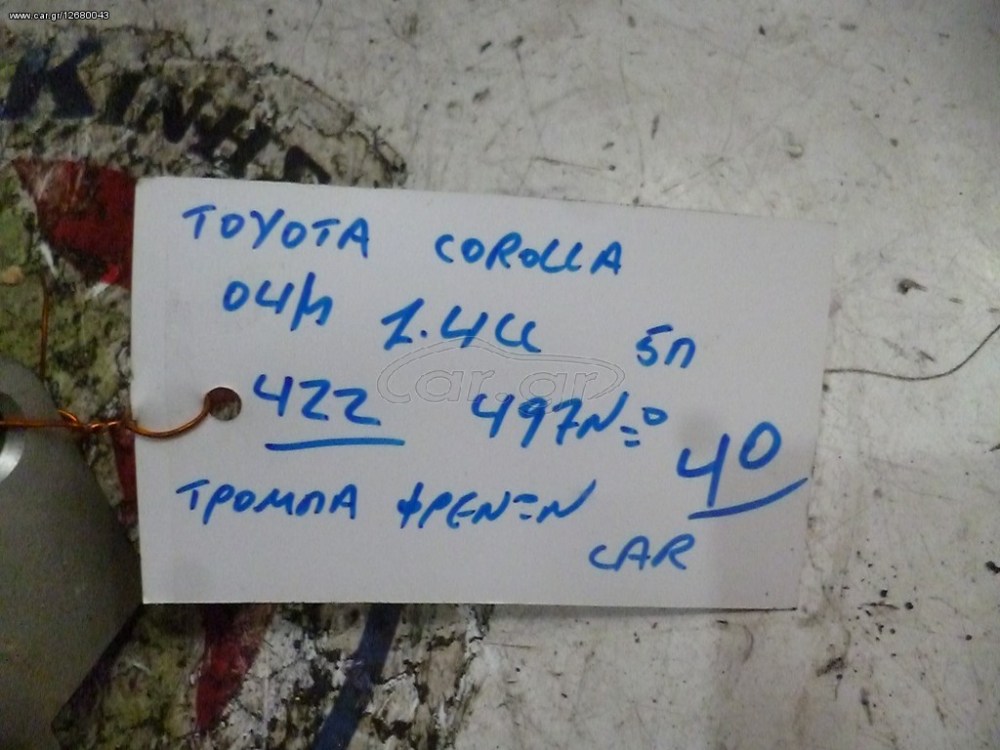 www.car.gr/12680043
KINH
TOYOTA COROLLA
04/Μ 1.4cc 5Π
car.gr
422 497N=º
40
ΤΡΟΜΠΑ ΦΡΕΝΩΝ
CAR